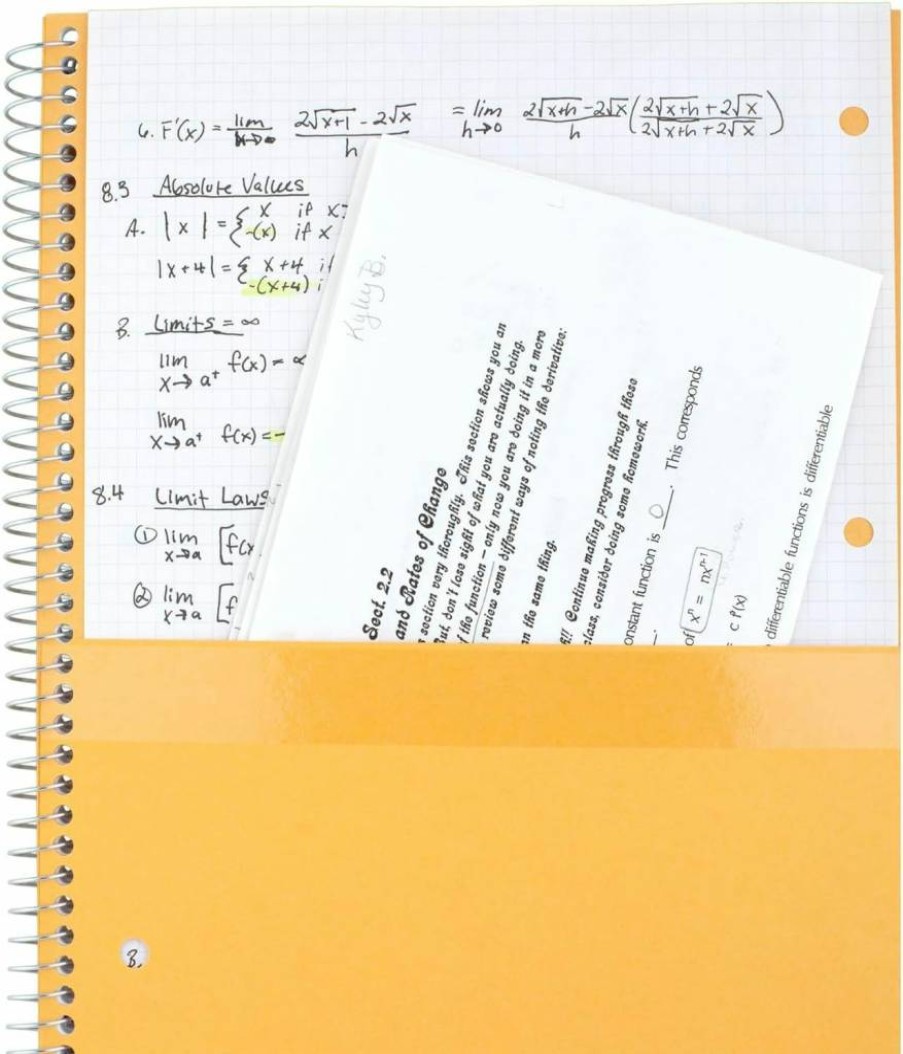 6. F'(x) = lim 2√x+1 - 2√x / h = lim h→0 2√x+h - 2√x / h ( 2√x+h + 2√x / 2√x+h + 2√x )
8.3 Absolute Values
A. |x| = { x if x
-(x) if x
|x+4| = { x+4 if
-(x+4) i
B. Limits = ∞
lim x→a⁺ f(x) = ∞
lim x→a⁺ f(x) = -
8.4 Limit Laws
① lim x→a [f(x
② lim x→a [f
Kyley B.
Sect. 2.2
and Rates of Change
s section very thoroughly. This section shows you an
ut, don't lose sight of what you are actually doing.
f the function — only now you are doing it in a more
review some different ways of noting the derivative:
n the same thing.
k!! Continue making progress through these
class, consider doing some homework.
onstant function is 0. This corresponds
of xⁿ = nxⁿ⁻¹
= c f'(x)
differentiable functions is differentiable
B.